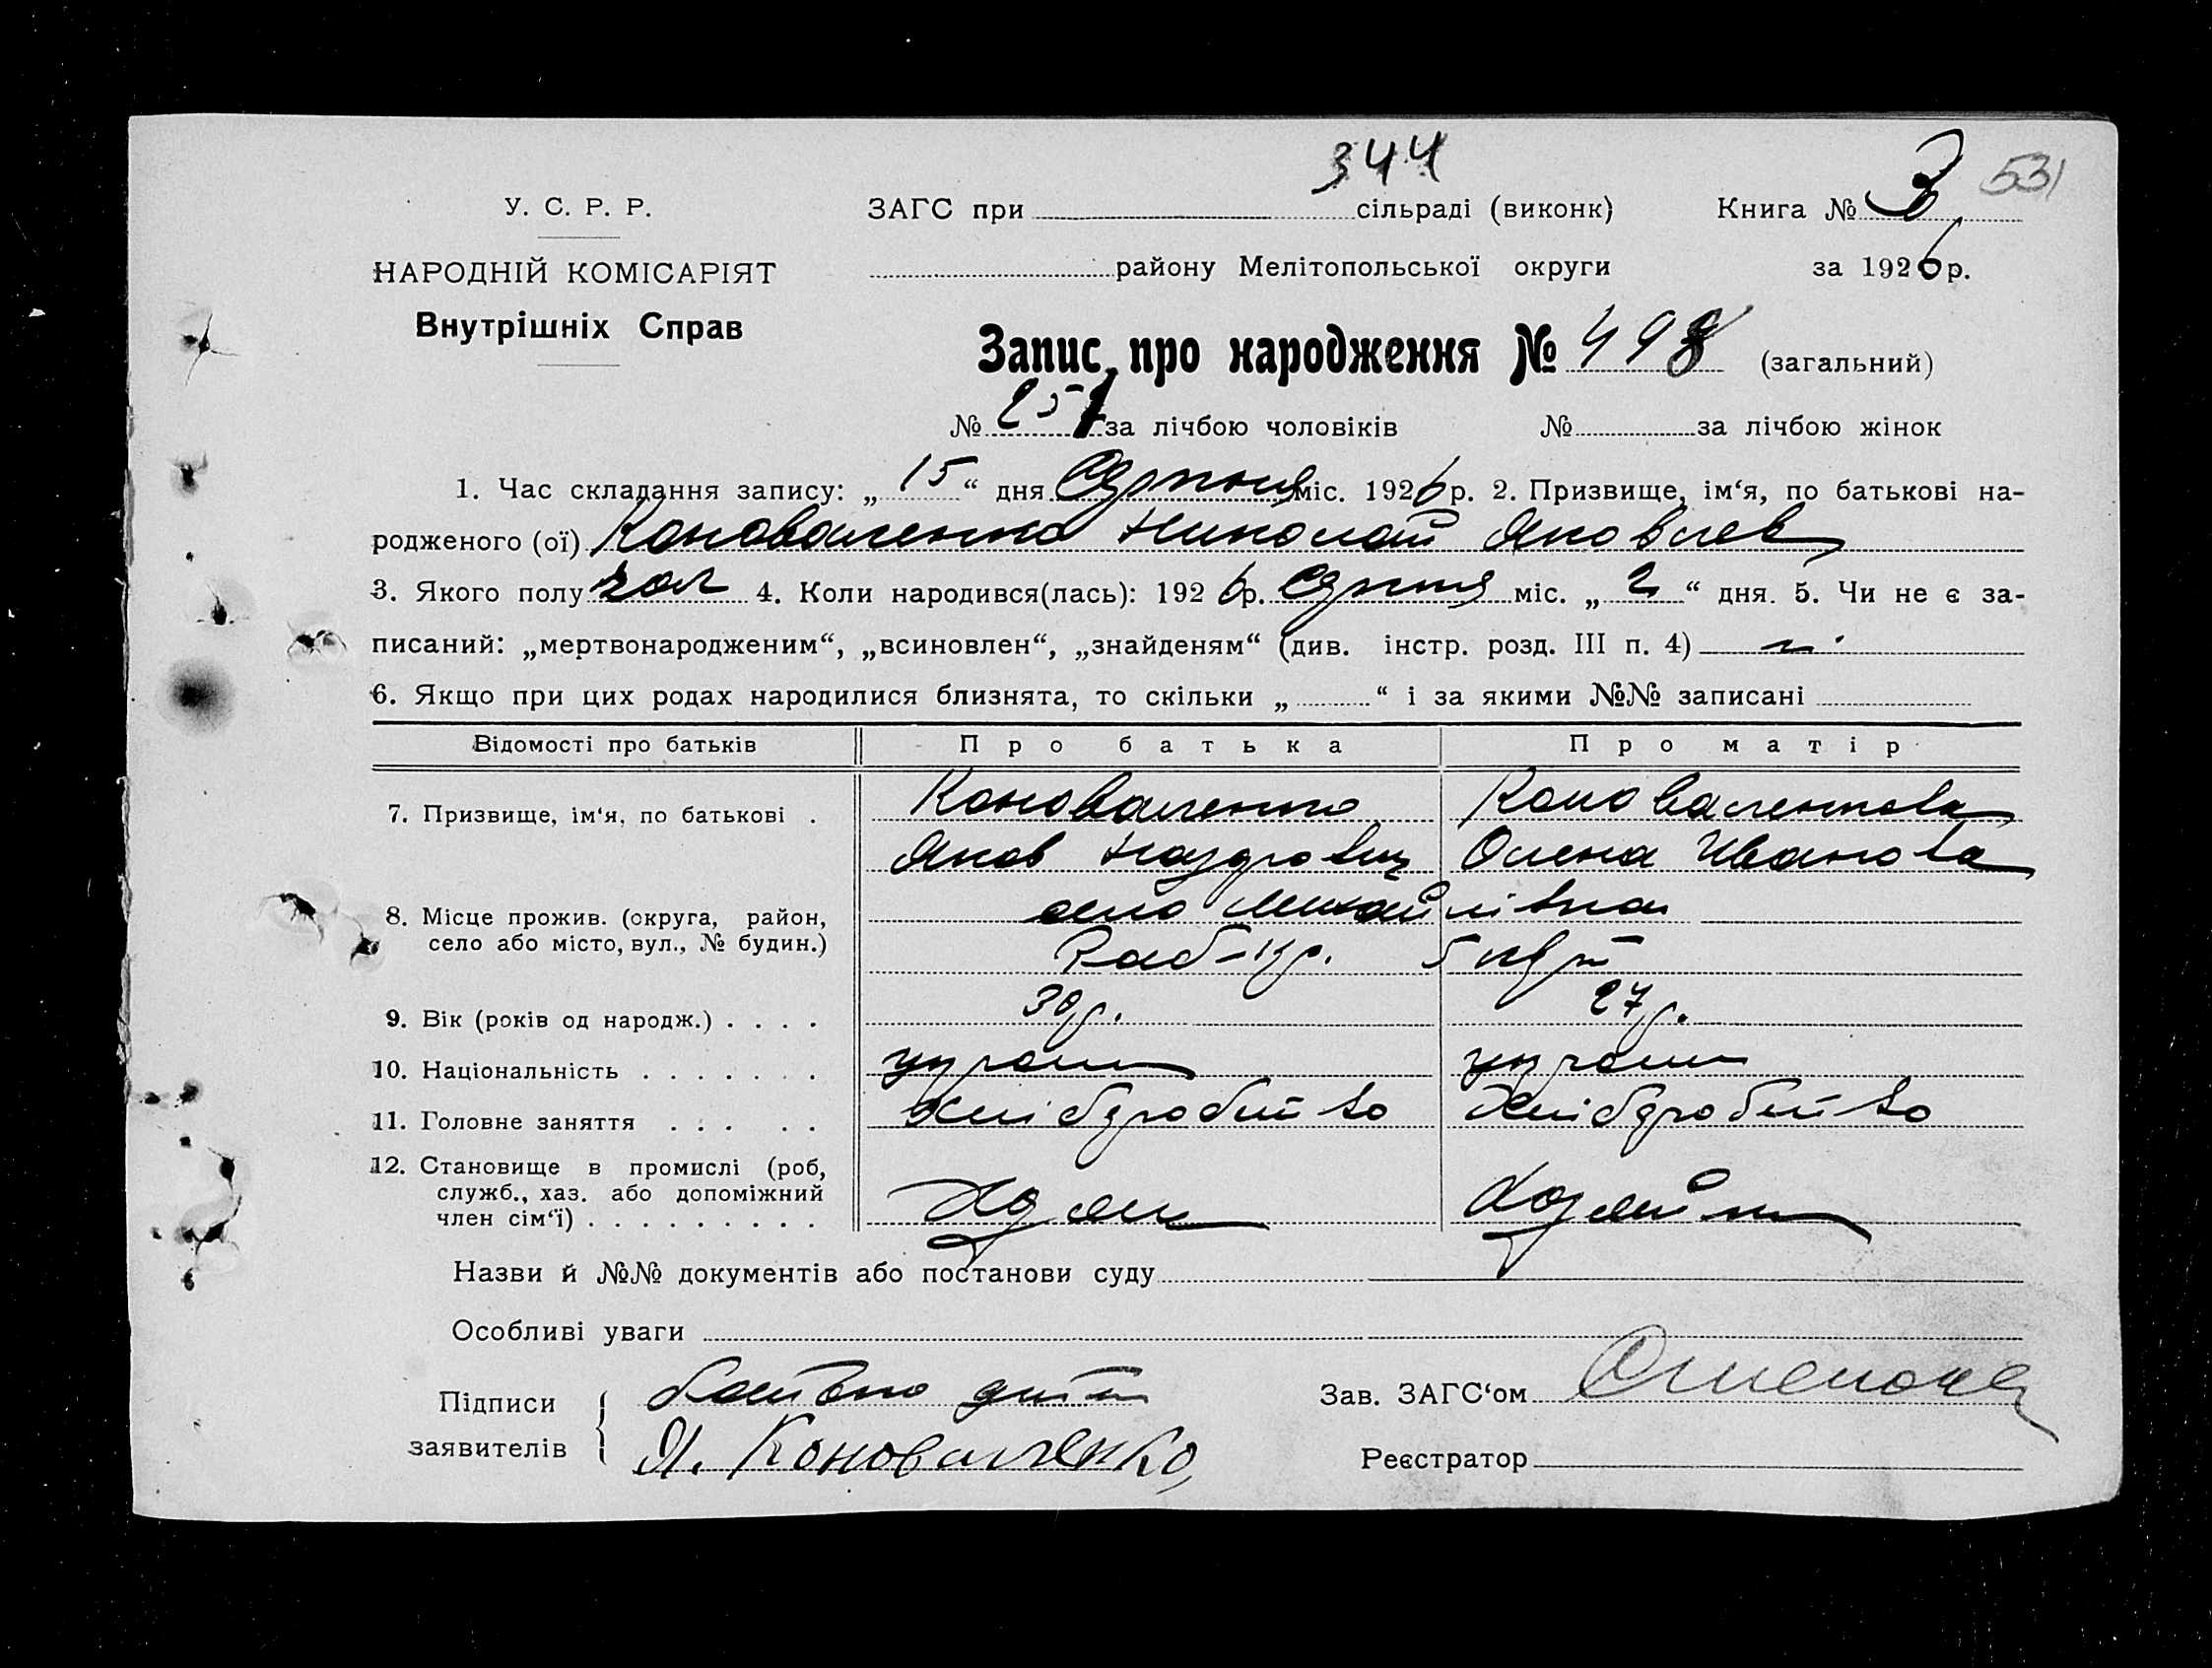 344
У. С. Р. Р. ЗАГС при сільраді (виконк) Книга № 3 531
НАРОДНІЙ КОМІСАРІЯТ району Мелітопольської округи за 1926 р.
Внутрішніх Справ
Запис про народження № 498 (загальний)
№ 257 за лічбою чоловіків № за лічбою жінок
1. Час складання запису: „ 15 “ дня Серпня міс. 1926 р. 2. Призвище, ім‘я, по батькові на-
родженого (ої) Коноваленко Николай Яковлев
3. Якого полу чол 4. Коли народився(лась): 1926 р. Серпня міс. „ 2 “ дня. 5. Чи не є за-
писаний: „мертвонародженим“, „всиновлен“, „знайденям“ (див. інстр. розд. III п. 4)
6. Якщо при цих родах народилися близнята, то скільки „ “ і за якими №№ записані
Відомості про батьків Про батька Про матір
7. Призвище, ім‘я, по батькові . Коноваленко Коновалентова
Яков Олена Иванова
8. Місце прожив. (округа, район, село Михайлівка
село або місто, вул., № будин.)
9. Вік (років од народж.) . . . . 30 р. 27 р.
10. Національність . . . . . . . україн україн
11. Головне заняття . . . . . Хліборобство Хліборобство
12. Становище в промислі (роб,
служб., хаз. або допоміжний
член сім‘ї) . . . . . . . . . Хозяин Хозяйка
Назви й №№ документів або постанови суду
Особливі уваги
Підписи
заявителів Я. Коноваленко
Зав. ЗАГС‘ом
Реєстратор